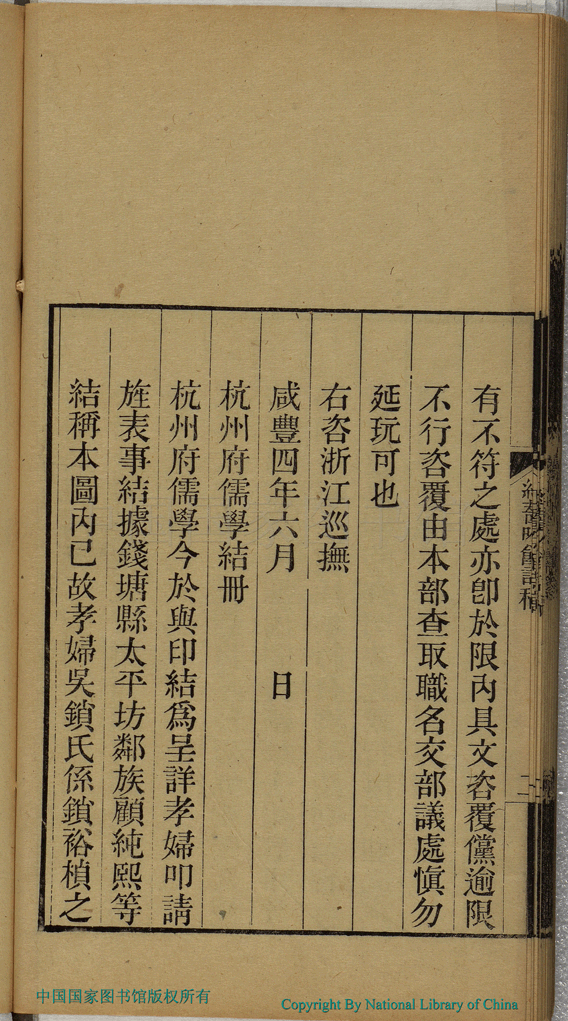 有不符之處亦卽於限內具文咨覆儻逾限
不行咨覆由本部查取職名交部議處愼勿
延玩可也
右咨浙江巡撫
咸豐四年六月 日
杭州府儒學結冊
杭州府儒學今於與印結爲呈詳孝婦叩請
旌表事結據錢塘縣太平坊鄰族顧純熙等
結稱本圖內已故孝婦吳鎖氏係鎖裕楨之
中国国家图书馆版权所有
Copyright By National Library of China